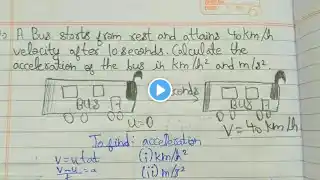 A Bus starts from rest and attains 40km/h
velocity after 10 seconds. Calculate the
acceleration of the bus in km/h² and m/s².
seconds
Bus
Bus
u=0
V=40 km/h
To find: acceleration
v=u+at
(i) km/h²
v-u=a
(ii) m/s²